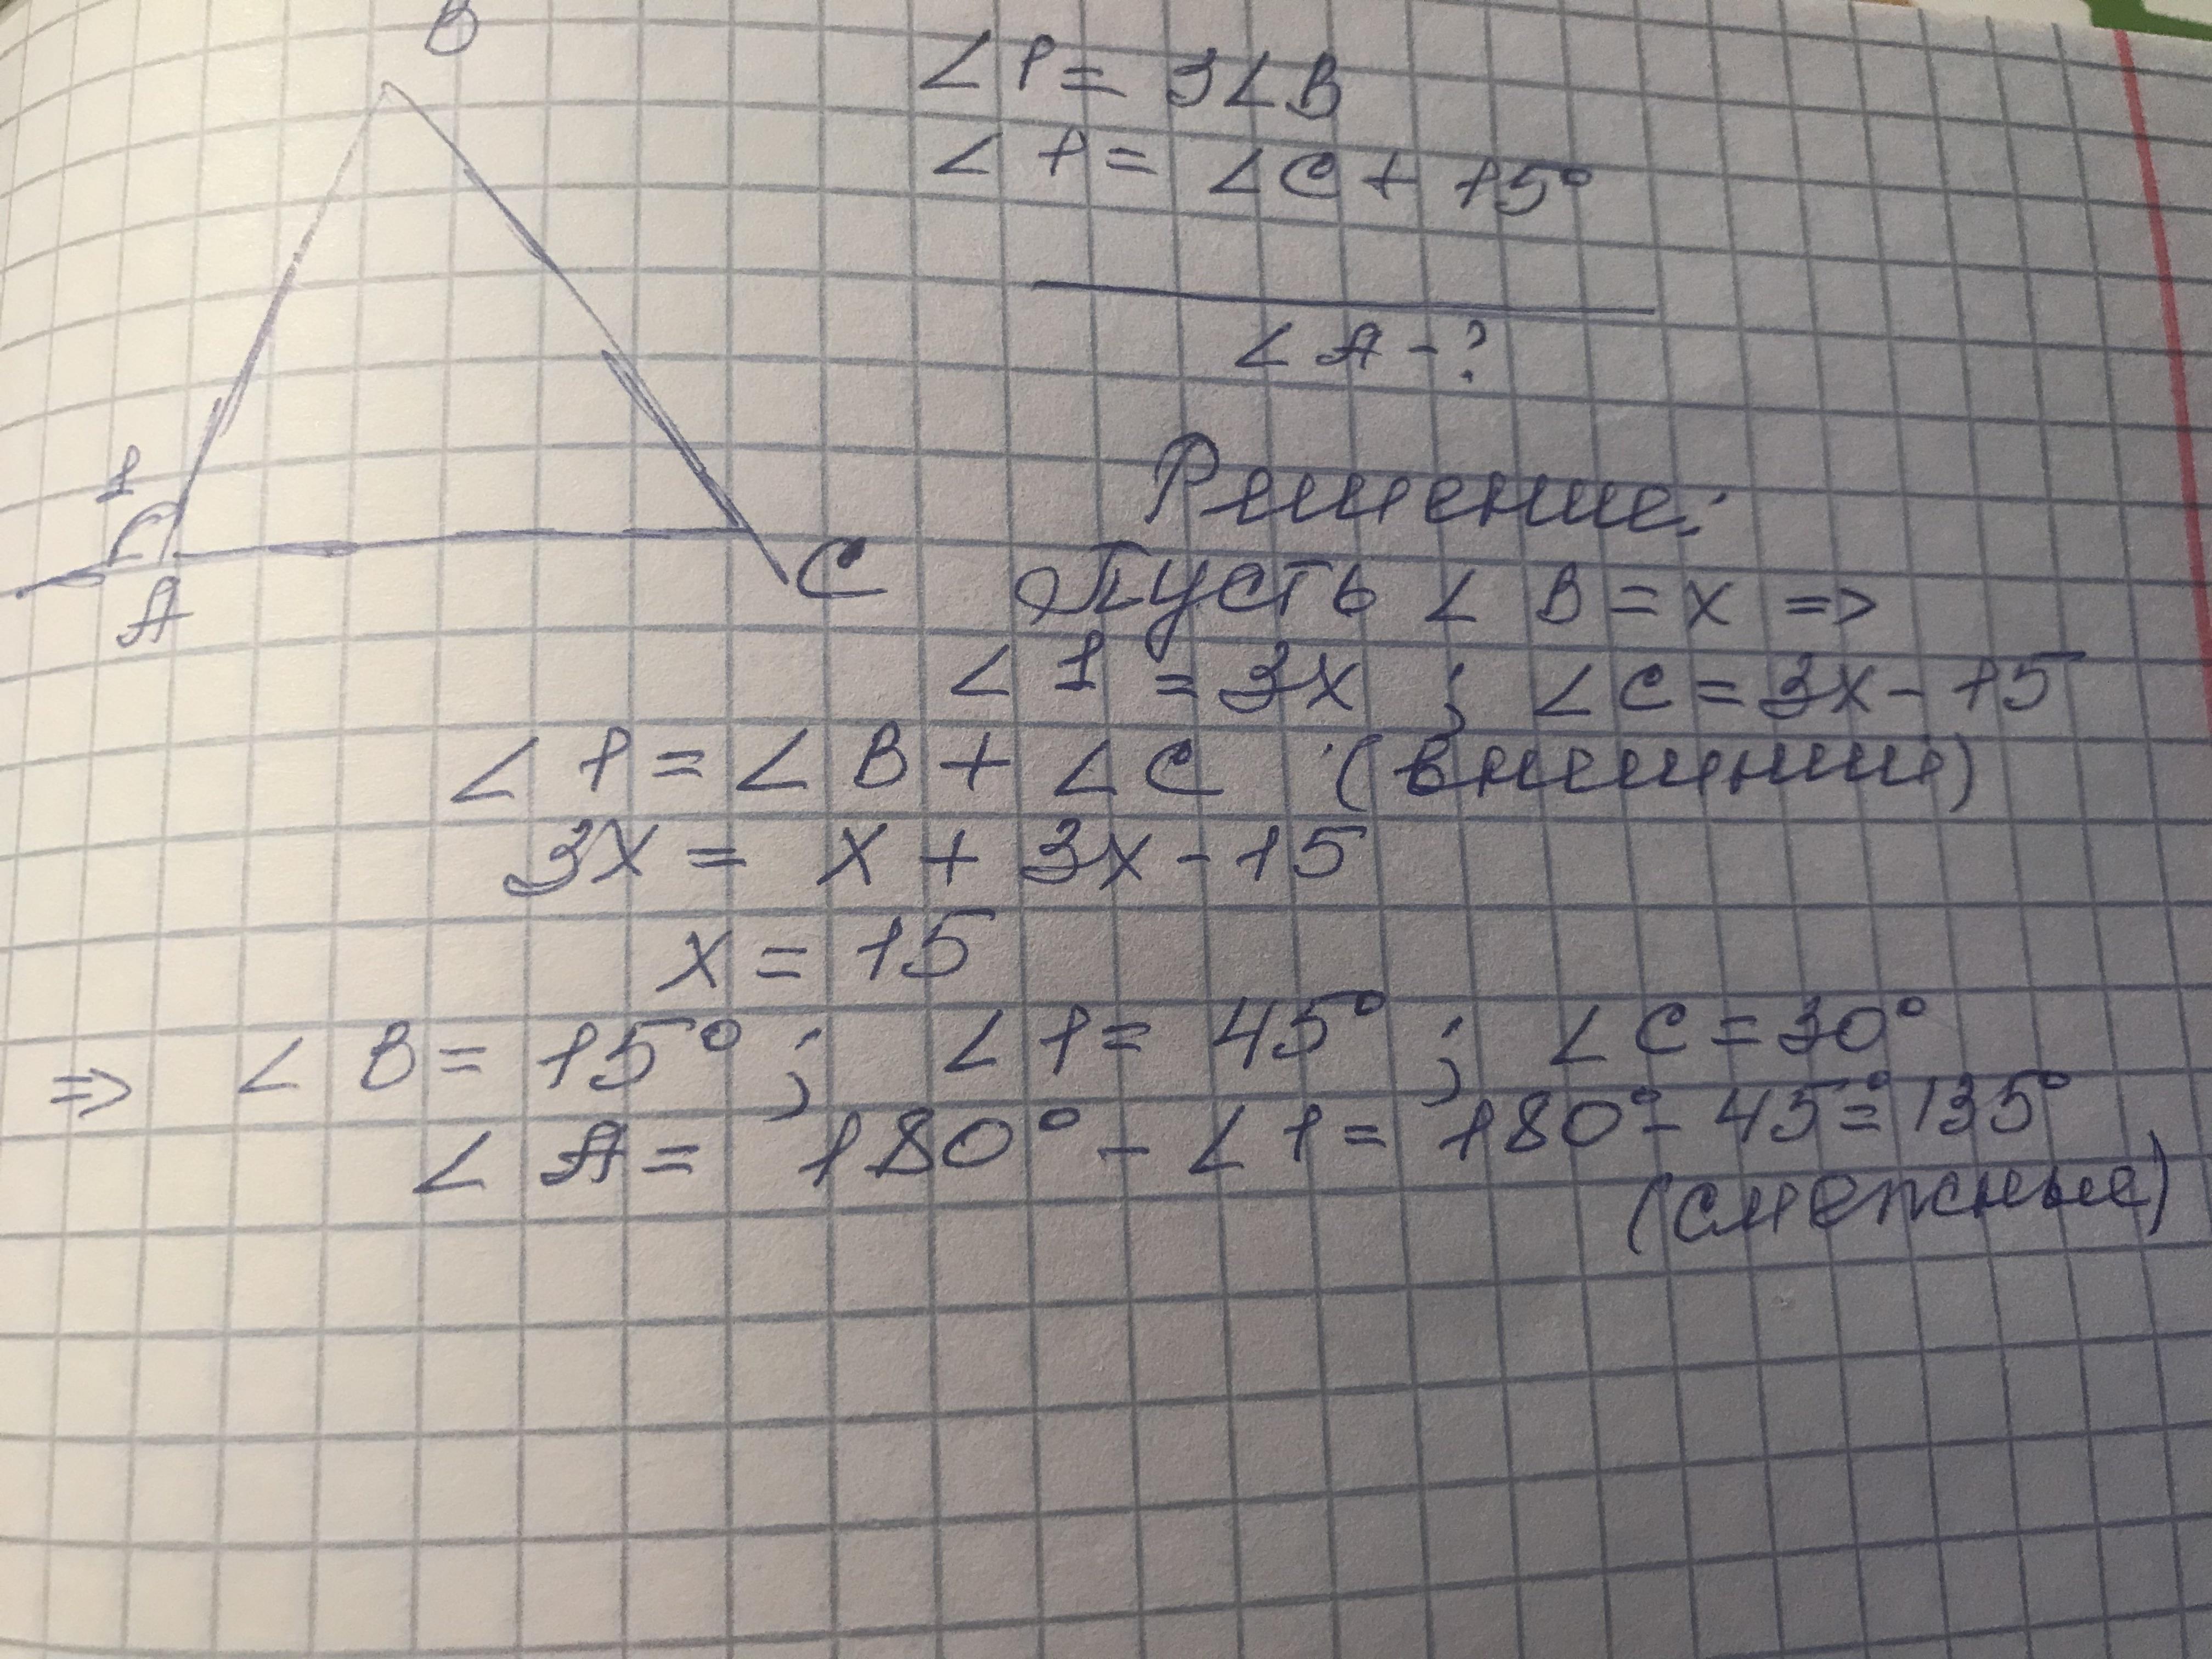 B
∠1 = 3∠B
∠1 = ∠C + 15°
∠A - ?
1
A
C
Решение:
Пусть ∠B = x =>
∠1 = 3x ; ∠C = 3x - 15
∠1 = ∠B + ∠C (внешний)
3x = x + 3x - 15
x = 15
=> ∠B = 15° ; ∠1 = 45° ; ∠C = 30°
∠A = 180° - ∠1 = 180° - 45° = 135°
(смежные)